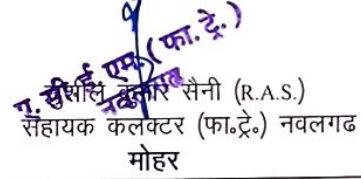 ए. सी. ई. एम. (फा. ट्रे.)
नवलगढ
सुशील कुमार सैनी (R.A.S.)
सहायक कलक्टर (फा०ट्रे०) नवलगढ
मोहर